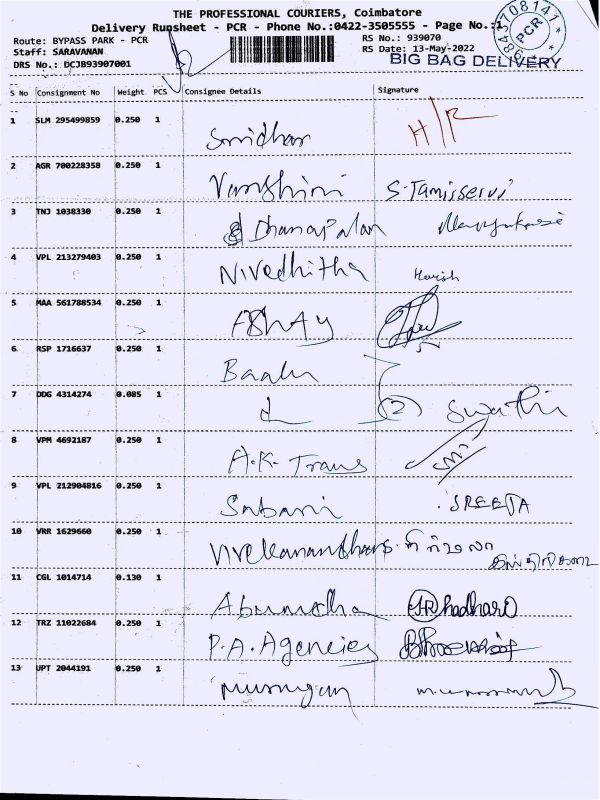 THE PROFESSIONAL COURIERS, Coimbatore
Delivery Runsheet - PCR - Phone No.:0422-3505555 - Page No.:1
Route: BYPASS PARK - PCR RS No.: 939070
Staff: SARAVANAN RS Date: 13-May-2022
DRS No.: DCJB93907001 BIG BAG DELIVERY
9843708141
PCR
S No Consignment No Weight PCS Consignee Details Signature
1 SLM 295499859 0.250 1 Smidhar H/R
2 AGR 700228358 0.250 1 Varshini S.Tamisservi
3 TNJ 1038330 0.250 1 Dhanapalan
4 VPL 213279403 0.250 1 Nivedhitha Harish
5 MAA 561788534 0.250 1
6 RSP 1716637 0.250 1 Baalu
7 DDG 4314274 0.085 1 (2) Swathi
8 VPM 4692187 0.250 1 A.K. Trans
9 VPL 212904816 0.250 1 Sabari SREEJA
10 VRR 1629660 0.250 1
11 CGL 1014714 0.130 1
12 TRZ 11022684 0.250 1 P.A. Agencies
13 UPT 2044191 0.250 1 Murugan